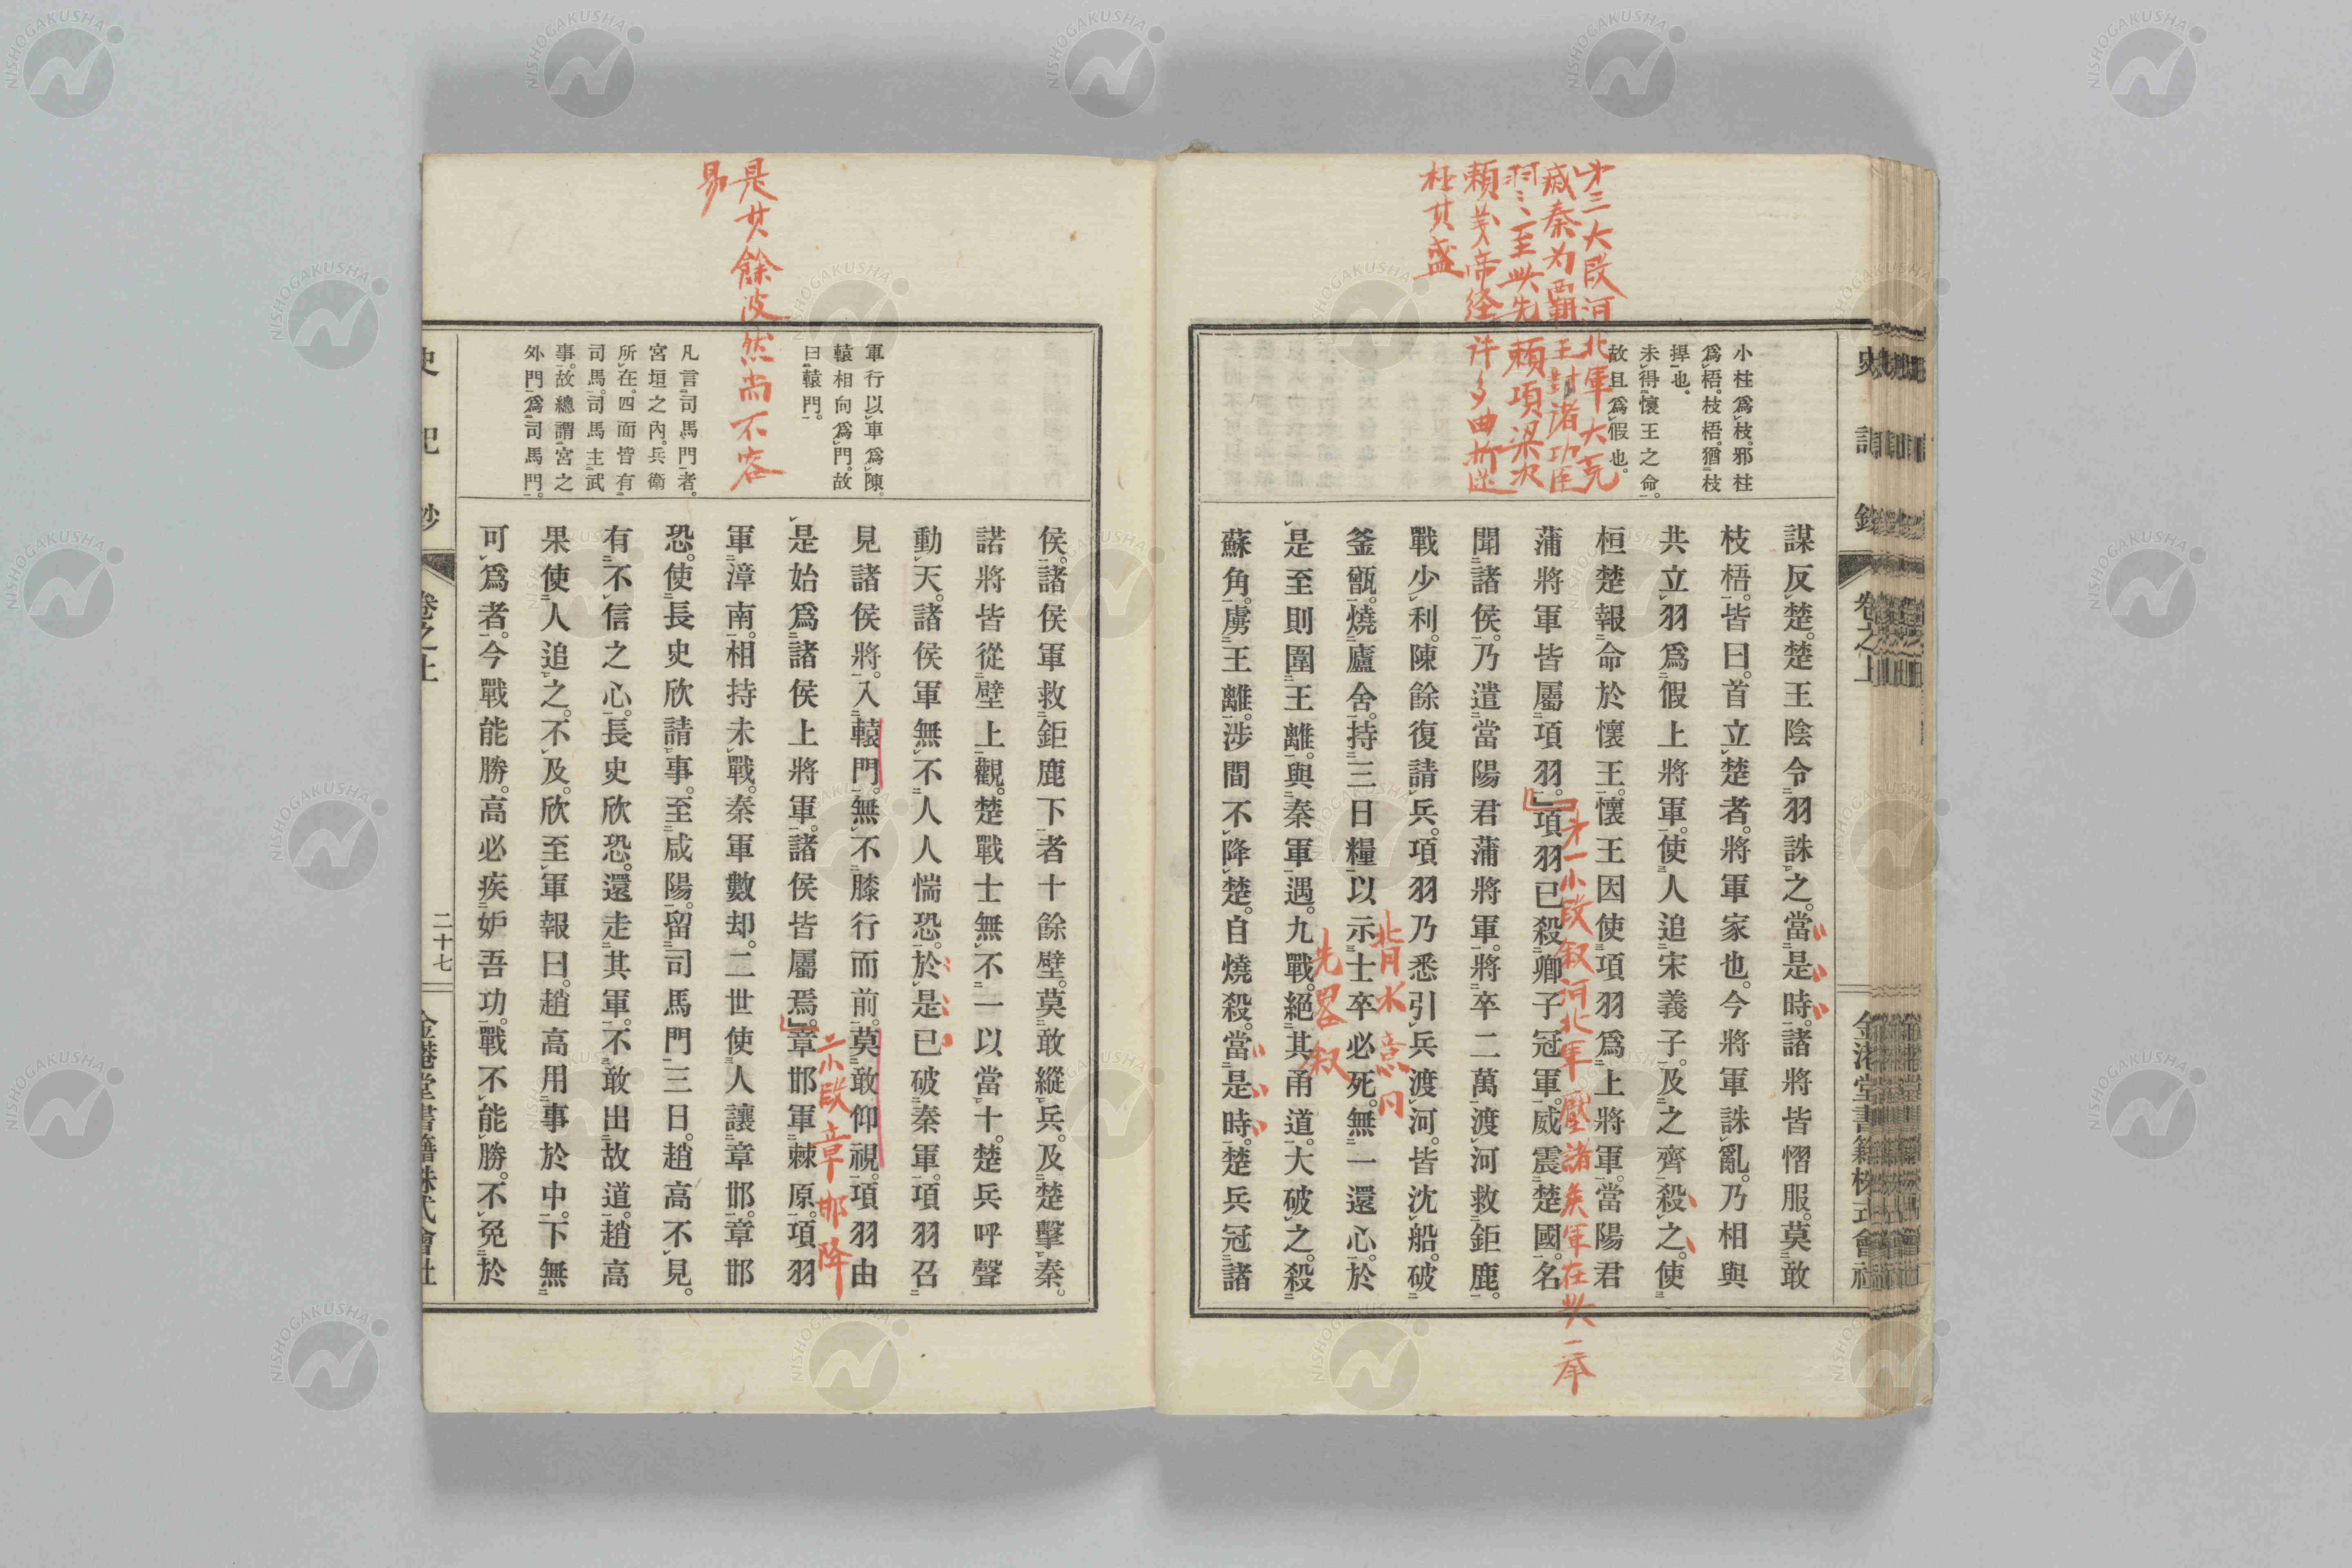 史記鈔
卷之上
金港堂書籍株式會社
小柱爲枝。邪柱
爲梧。枝梧。猶枝
捍也。
未得懷王之命。
故且爲假也。
才三大段河北軍大克
王對諸功臣
羽〻至此先賴項梁次
賴義帝経许多曲折遂
極其盛
謀反楚。楚王陰令羽誅之。當是時。諸將皆慴服。莫敢
枝梧。皆曰。首立楚者。將軍家也。今將軍誅亂。乃相與
共立羽爲假上將軍。使人追宋義子。及之齊殺之。使
桓楚報命於懷王。懷王因使項羽爲上將軍。當陽君
蒲將軍皆屬項羽。』項羽已殺卿子冠軍。威震楚國。名
才一小段叙河北軍壓諸矦軍在此一举
聞諸侯。乃遣當陽君蒲將軍。將卒二萬渡河救鉅鹿。
戰少利。陳餘復請兵。項羽乃悉引兵渡河。皆沈船。破
背水意同
釜甑。燒廬舍。持三日糧。以示士卒必死。無一還心。於
先畧叙
是至則圍王離。與秦軍遇。九戰。絕其甬道。大破之。殺
蘇角。虜王離。涉間不降楚。自燒殺。當是時。楚兵冠諸
軍行以車爲陳。
轅相向爲門。故
曰轅門。
是其餘波然尚不容
易
凡言司馬門者。
宮垣之內。兵衛
所在。四面皆有
司馬。司馬主武
事。故總謂宮之
外門爲司馬門。
侯。諸侯軍救鉅鹿下者十餘壁。莫敢縱兵。及楚擊秦。
諸將皆從壁上觀。楚戰士無不一以當十。楚兵呼聲
動天。諸侯軍無不人人惴恐。於是已破秦軍。項羽召
見諸侯將。入轅門。無不膝行而前。莫敢仰視。項羽由
是始爲諸侯上將軍。諸侯皆屬焉。』章邯軍棘原。項羽
二小段章邯降
軍漳南。相持未戰。秦軍數却。二世使人讓章邯。章邯
恐。使長史欣請事。至咸陽。留司馬門三日。趙高不見。
有不信之心。長史欣恐。還走其軍。不敢出故道。趙高
果使人追之。不及。欣至軍報曰。趙高用事於中。下無
可爲者。今戰能勝。高必疾妒吾功。戰不能勝。不免於
史記鈔
卷之上
二十七
金港堂書籍株式會社